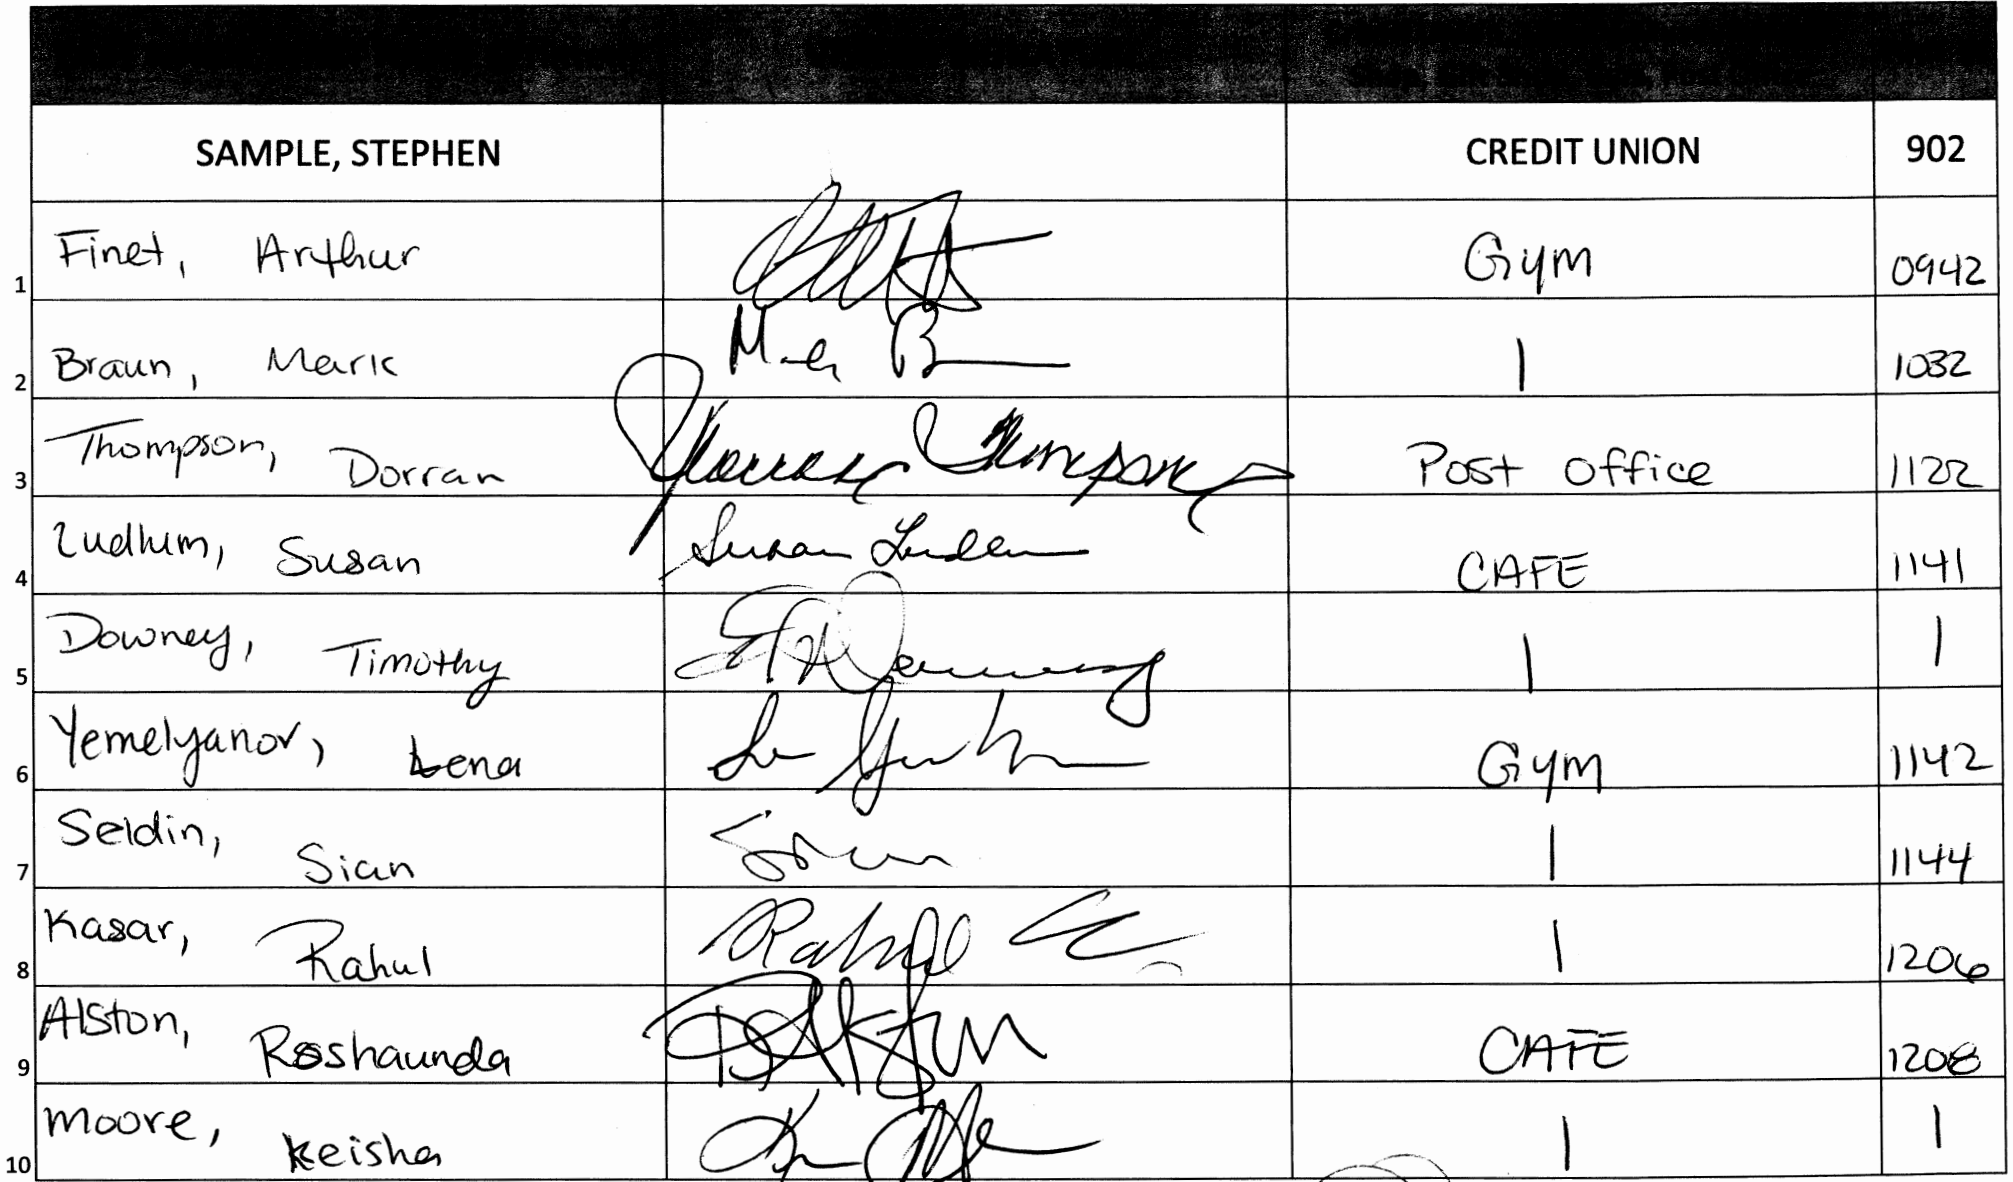 SAMPLE, STEPHEN CREDIT UNION 902
1 Finet, Arthur Gym 0942
2 Braun, Mark | 1032
3 Thompson, Dorran Post Office 1122
4 Ludlum, Susan CAFE 1141
5 Downey, Timothy | |
6 Yemelyanov, Lena Gym 1142
7 Seldin, Sian | 1144
8 Kasar, Rahul | 1206
9 Alston, Roshaunda CAFE 1208
10 Moore, Keisha | |